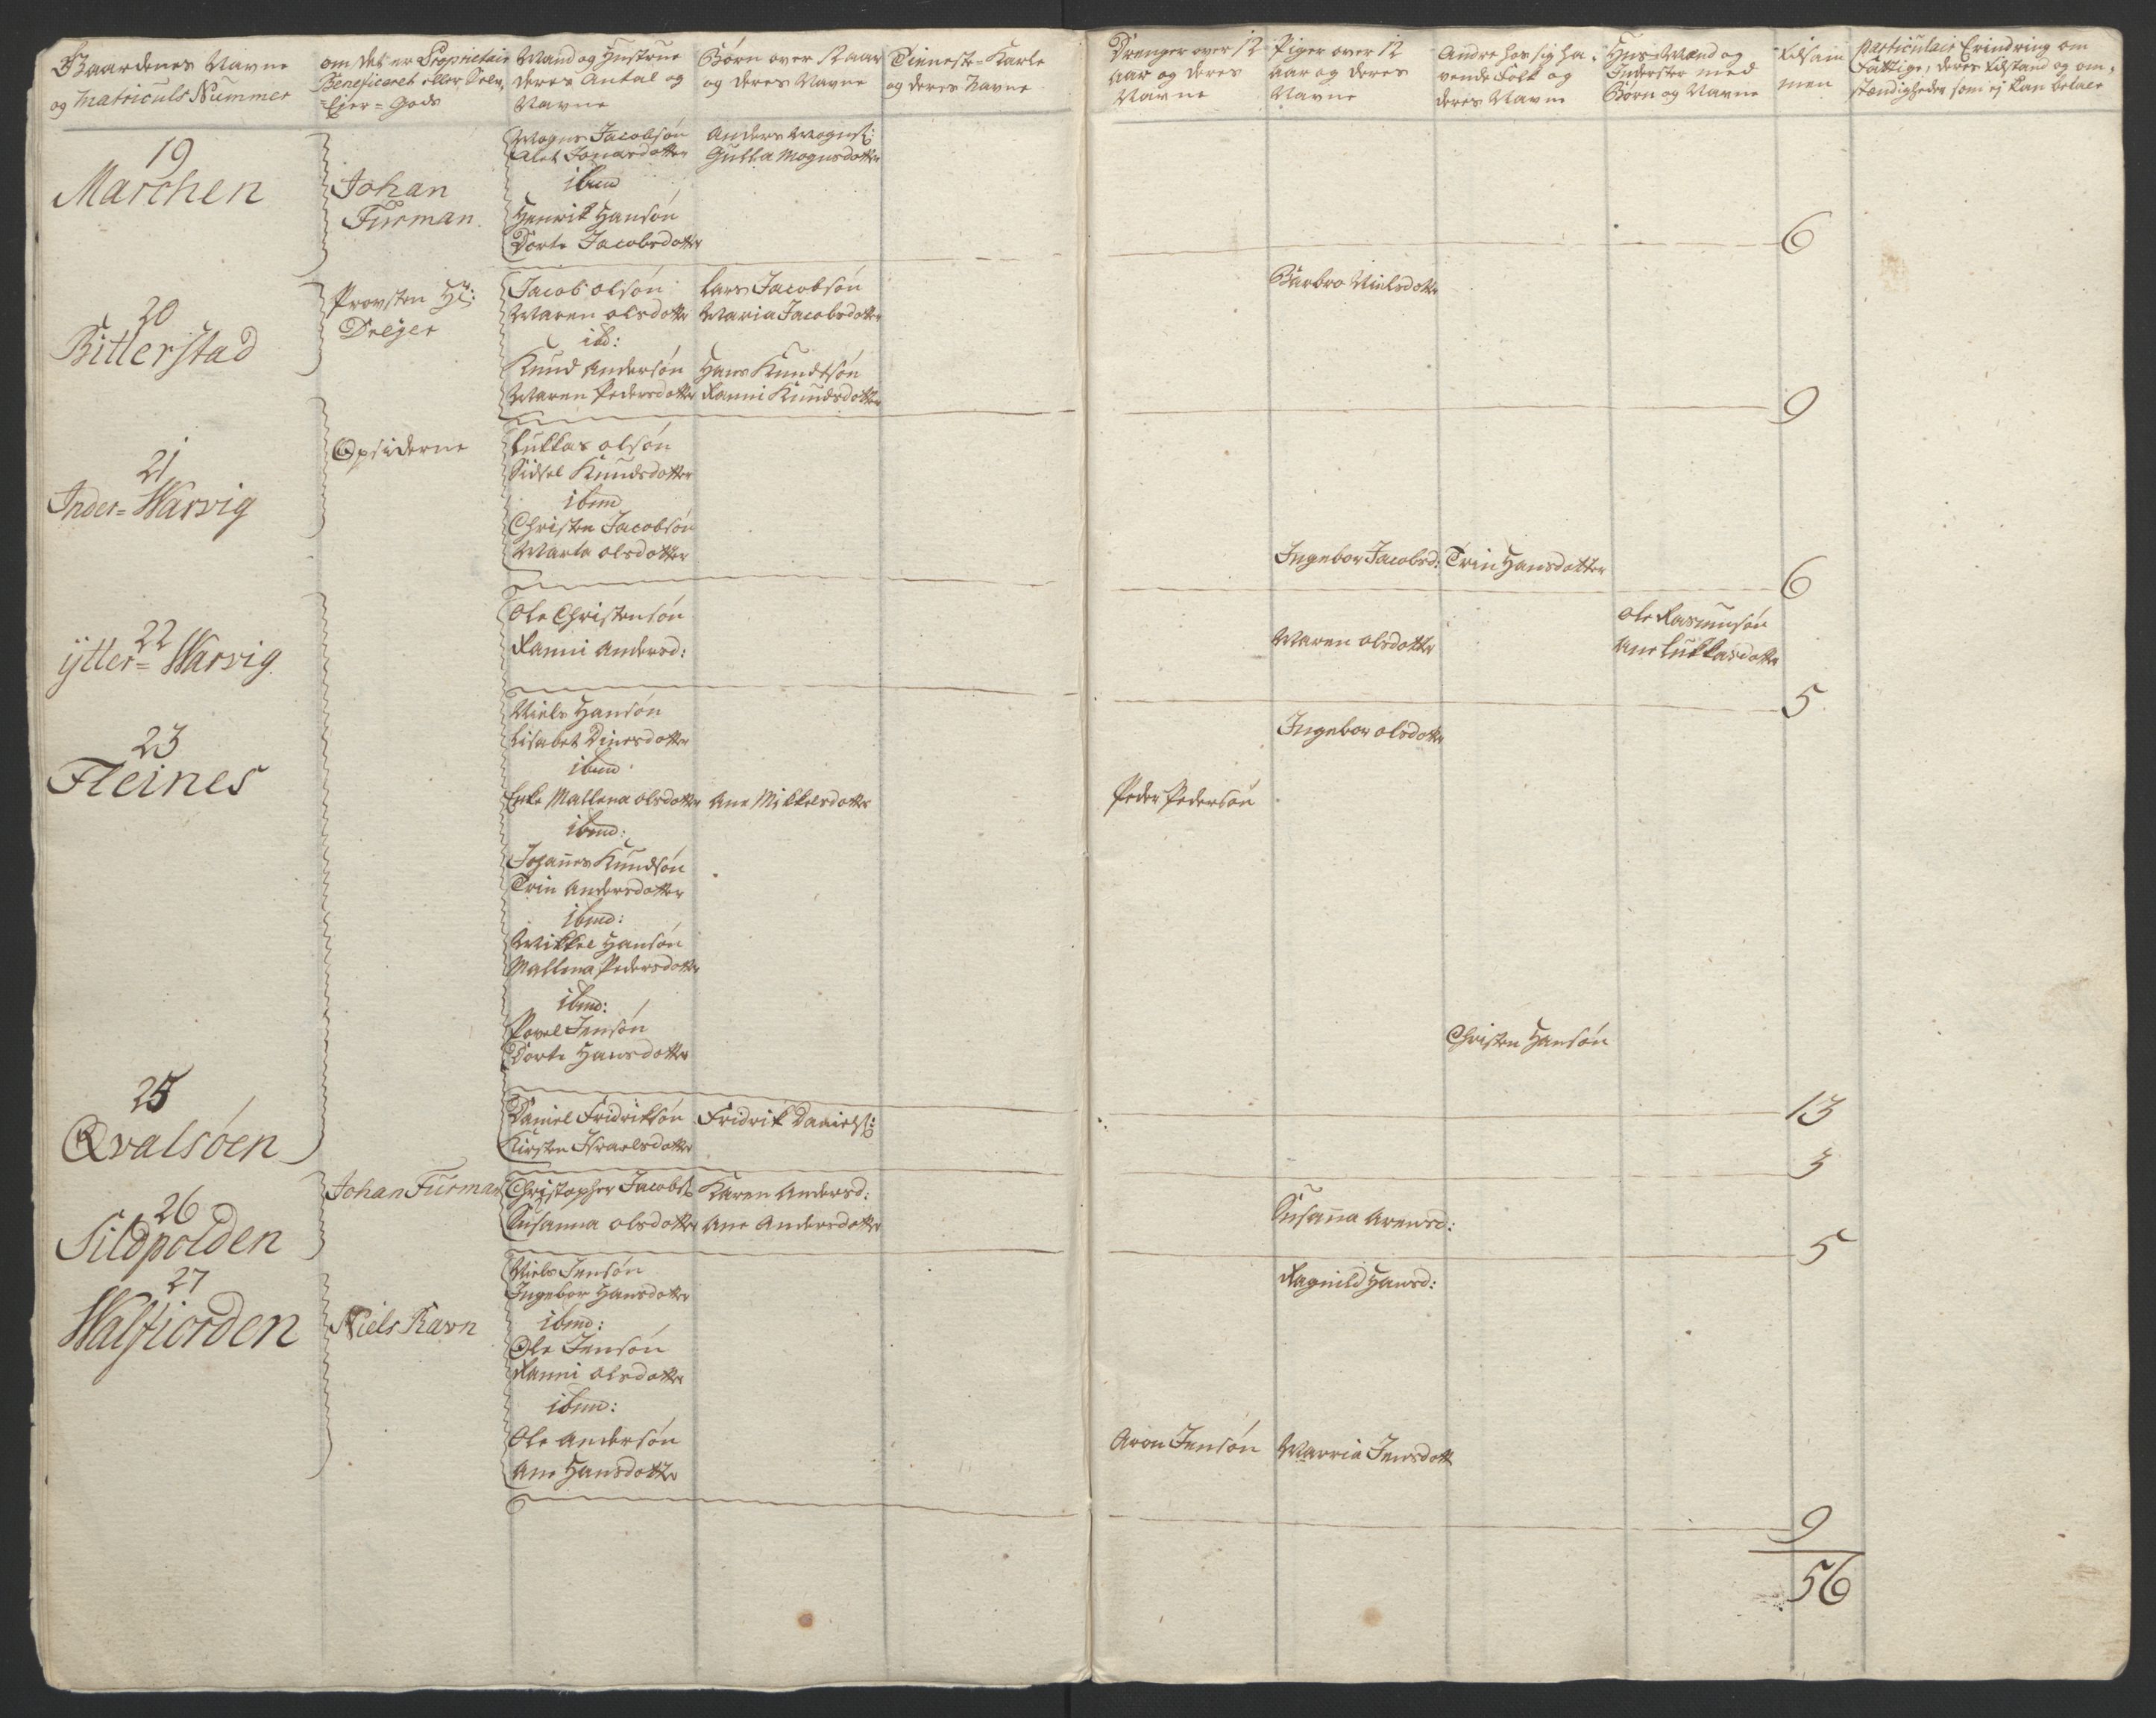 Gaardenes Navne
og Matriculs Nummer
om det er Proprietair
Beneficeret eller Selv,
=Ejer=Gods
Mand og Hustrue
deres Antal og
Navne
Børn over 12 aar
og deres Navne
Tieneste-Karle
og deres Navne
Drenger over 12
aar og deres
Navne
Piger over 12
aar og deres
Navne
Andre hos sig ha-
vende Folk og
deres Navne
Huus-Mænd og
Inderster med
Børn og Navne
Tilsam
men
particulair Erindring om
Fattige, deres Tilstand og om-
stændigheder som ej kan betale
19
Marchen
Johan
Furman
Mogns Jacobsøn
Alet Jonasdotter
ibmd
Henrik Hansøn
Dorte Jacobsdotter
Anders Mognss:
Gulla Mognsdotter
6
20
Bitterstad
Provsten Hr:
Drejer
Jacob olsøn
Maren olsdotter
ibd:
Knud Andersøn
Maren Pedersdotter
Lars Jacobsøn
Maria Jacobsdotter
Hans Knudsøn
Ranni Knudsdotter
Barbro Nielsdotter
9
21
Inder=Warvig
Opsiderne
Lukkas olsøn
Sidsel Knudsdotter
ibmd
Christen Jacobsøn
Marta olsdotter
Ingebor Jacobsd:
Trin Hansdotter
6
22
ÿtter=Warvig
Ole Christensøn
Ranni Andersd:
Maren olsdotter
ole Rasmusøn
Ane Lukkasdotter
5
23
Fleines
Niels Hansøn
Lisabet Dinesdotter
ibmd
Enke Mallena olsdotter
Ane Mikkelsdotter
ibmd:
Johannes Knudsøn
Trin Andersdotter
ibmd:
Mikkel Hansøn
Mallena Pedersdotter
ibmd:
Povel Jensøn
Dorte Hansdotter
Ingebor olsdotter
Peder Pedersøn
Christen Hansøn
13
25
Qvalsöen
Daniel Fridriksøn
Kirsten Israelsdotter
Fridrik Daniels:
3
26
Sildpolden
Johan Furman
Christopher Jacobs:
Susanna olsdotter
Karen Andersd:
Ane Andersdotter
Susanna Arensd:
5
27
Walfiorden
Niels Ravn
Niels Jensøn
Ingebor Hansdotter
ibmd:
Ole Jensøn
Ranni olsdotter
ibmd:
Ole Andersøn
Ane Hansdotter
Ragnild Hansd:
Aron Jensøn
Marria Jensdott
9
56